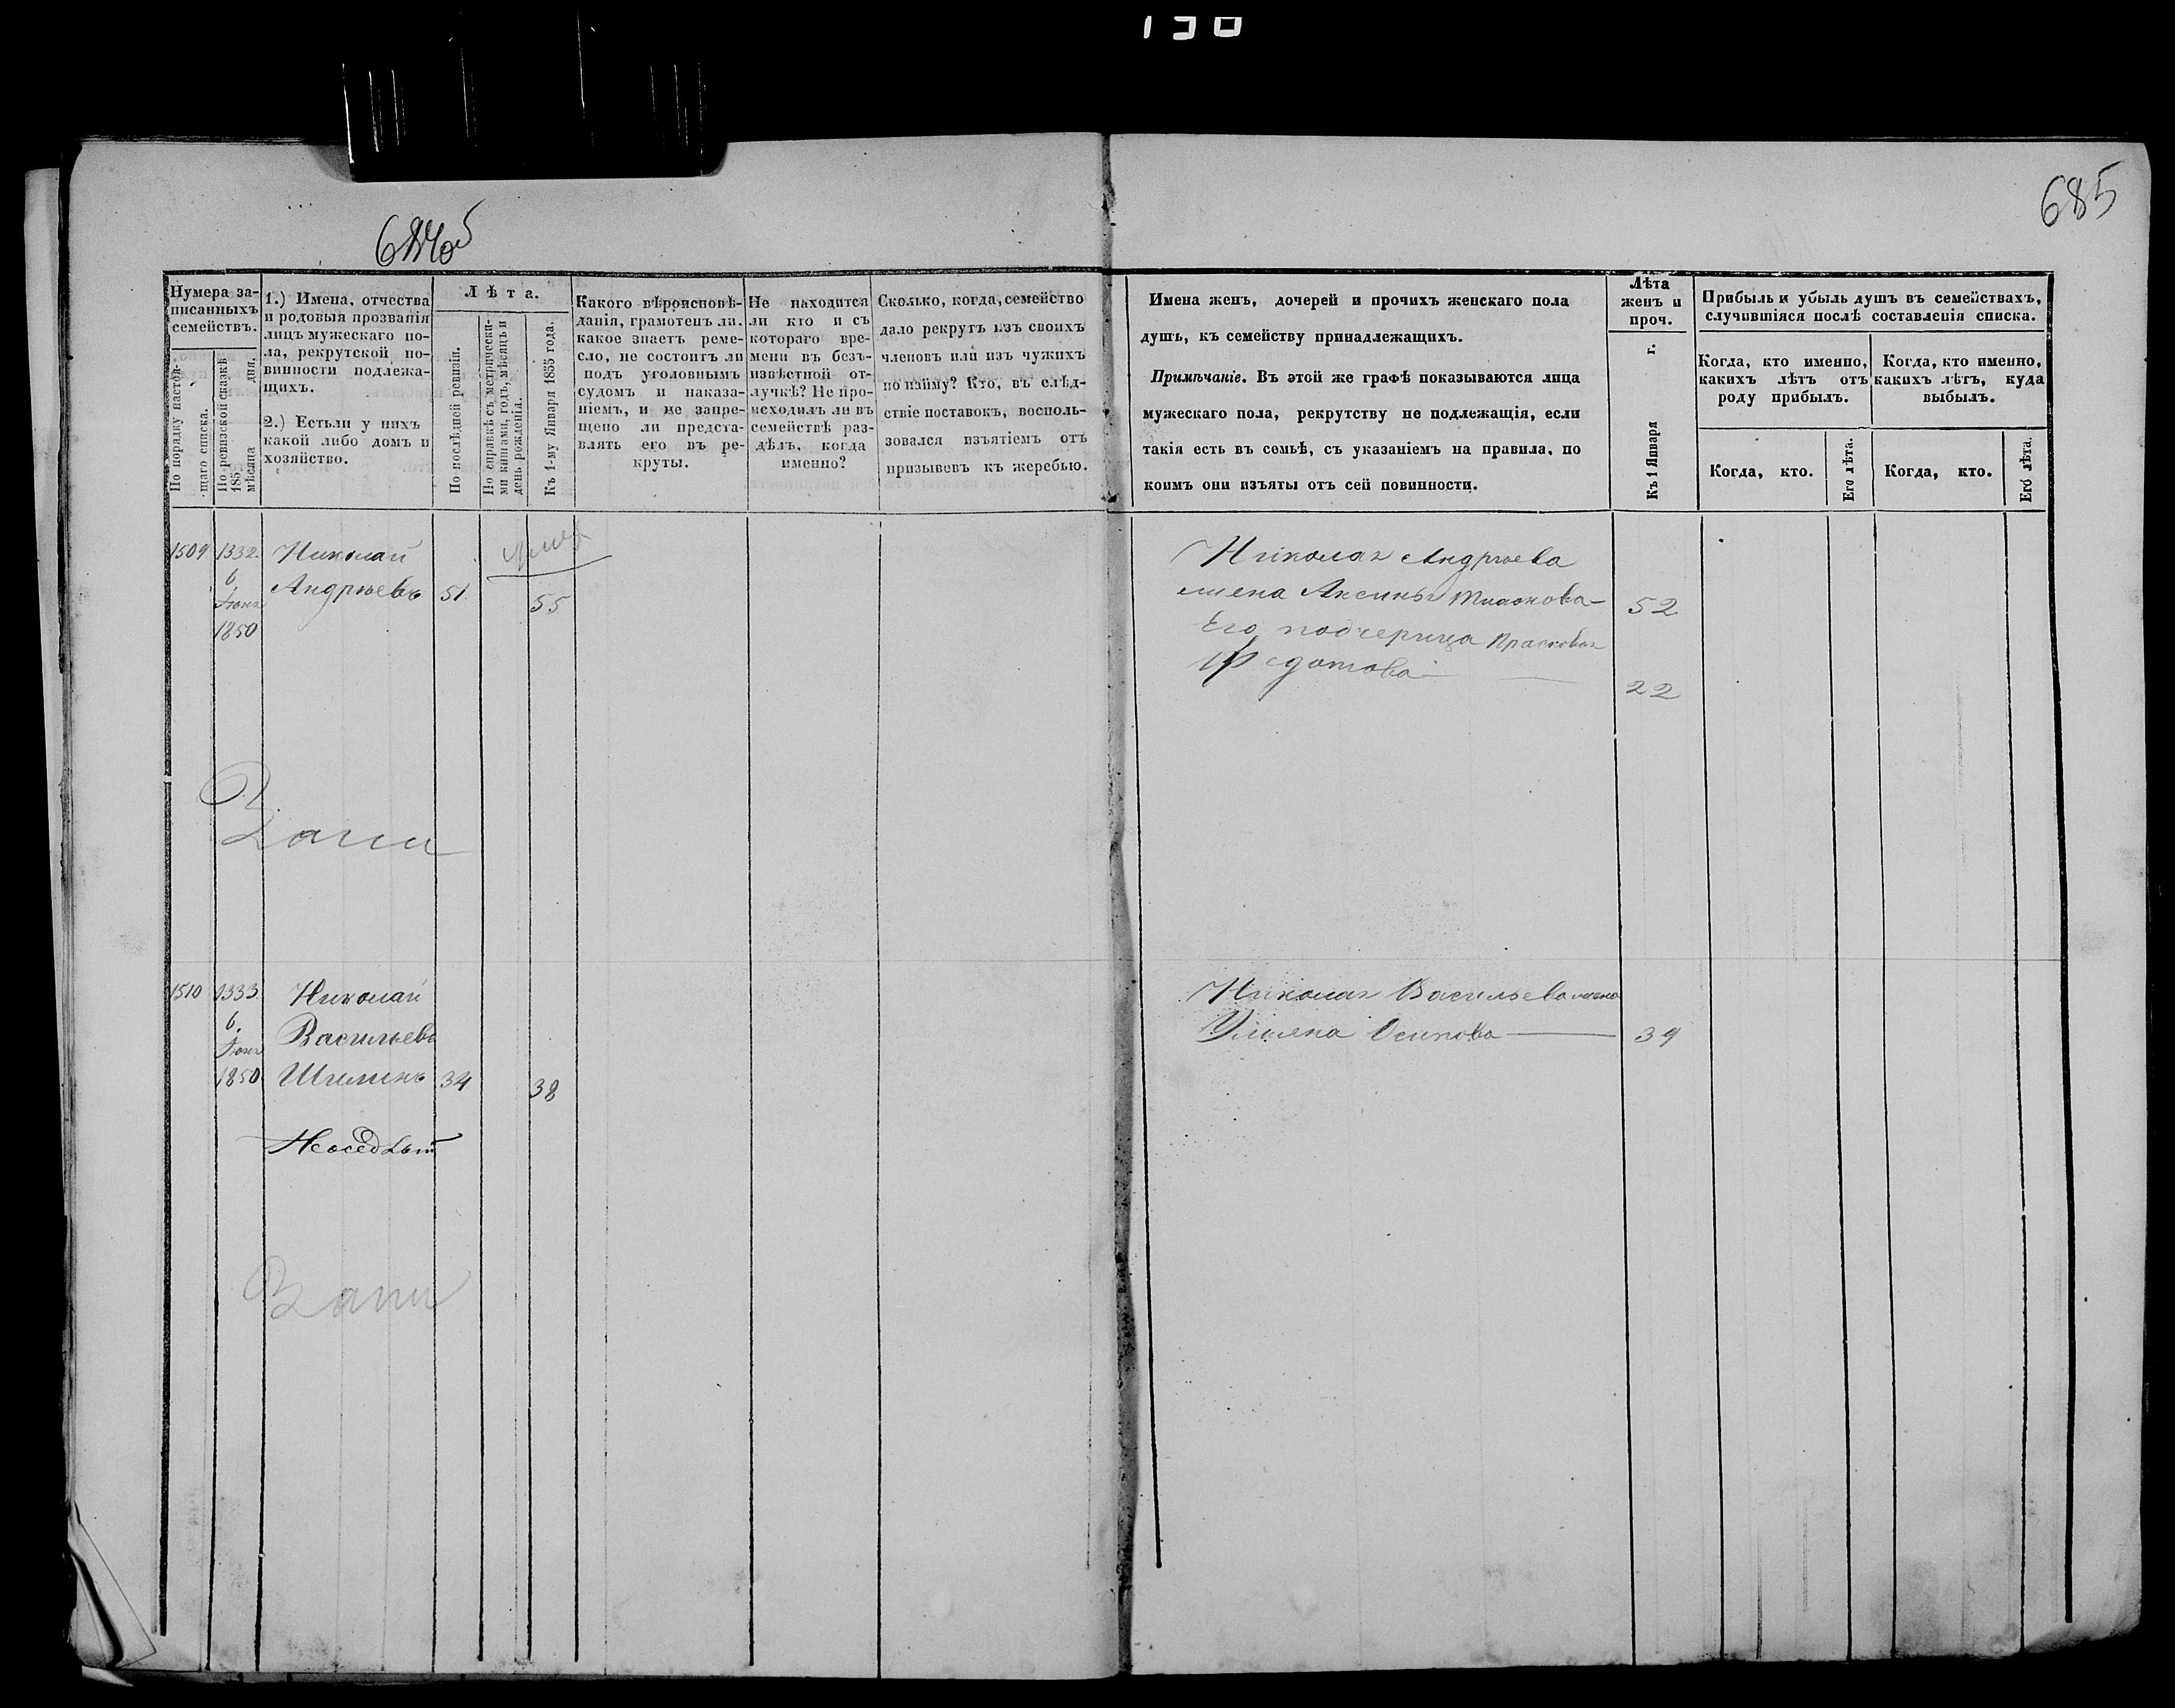 130
685
Нумера за-
писанныхъ
семействъ.
По порядку настоя-
щаго списка.
По ревизской сказкѣ
185 дня.
мѣсяца
1.) Имена, отчества
и родовыя прозванія
лицъ мужескаго по-
ла, рекрутской по-
винности подлежа-
щихъ.
2.) Естьли у нихъ
какой либо домъ и
хозяйство.
Лѣта.
По послѣдней ревизіи.
По справкѣ съ метрически-
ми книгами, годъ, мѣсяцъ и
день рожденія.
Къ 1-му Января 1855 года.
Какого вѣроисповѣ-
данія, грамотенъ ли.
какое знаетъ реме-
сло, не состоитъ ли
подъ уголовнымъ
судомъ и наказа-
ніемъ, и не запре-
щено ли предста-
влять его въ ре-
круты.
Не находится
ли кто и съ
котораго вре-
мени въ безъ-
извѣстной от-
лучкѣ? Не про-
исходилъ ли въ
семействѣ раз-
дѣлъ, когда
именно?
Сколько, когда, семейство
дало рекрутъ изъ своихъ
членовъ или изъ чужихъ
по найму? Кто, въ слѣд-
ствіе поставокъ, восполь-
зовался изъятіемъ отъ
призывевъ къ жеребью.
Имена женъ, дочерей и прочихъ женскаго пола
душъ, къ семейству принадлежащихъ.
Примѣчаніе. Въ этой же графѣ показываются лица
мужескаго пола, рекрутству не подлежащія, если
такія есть въ семьѣ, съ указаніемъ на правила, по
коимъ они изъяты отъ сей повинности.
Лѣта
женъ и
проч.
Къ 1 Января г.
Прибыль и убыль душъ въ семействахъ,
случившіяся послѣ составленія списка.
Когда, кто именно,
какихъ лѣтъ отъ
роду прибылъ.
Когда, кто именно,
какихъ лѣтъ, куда
выбылъ.
Когда, кто.
Его лѣта.
Когда, кто.
Его лѣта.
1509 1332. Николай
6.
Андрѣевъ 51. 55
Іюня
1850
Николая Андрѣева
жена Аксинья 52
Егоподчерица Прасковья
Федотова 22
1510 1333 Николай
6. Васильевъ
Іюня
1850 34 38
Николая Васильева жена
Ульяна Осипова 39